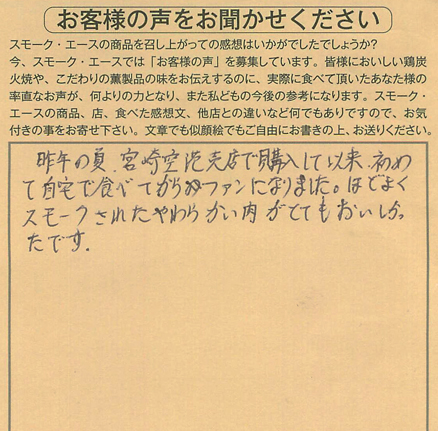 お客様の声をお聞かせください
スモーク・エースの商品を召し上がっての感想はいかがでしたでしょうか?
今、スモーク・エースでは「お客様の声」を募集しています。皆様においしい鶏炭
火焼や、こだわりの薫製品の味をお伝えするのに、実際に食べて頂いたあなた様の
率直なお声が、何よりの力となり、また私どもの今後の参考になります。スモーク・
エースの商品、店、食べた感想文、他店との違いなど何でもありですので、お気
付きの事をお寄せ下さい。文章でも似顔絵でもご自由にお書きの上、お送りください。
昨年の夏、宮崎空港売店で購入して以来、初め
て自宅で食べてからファンになりました。ほどよく
スモークされたやわらかい肉がとてもおいしかっ
たです。